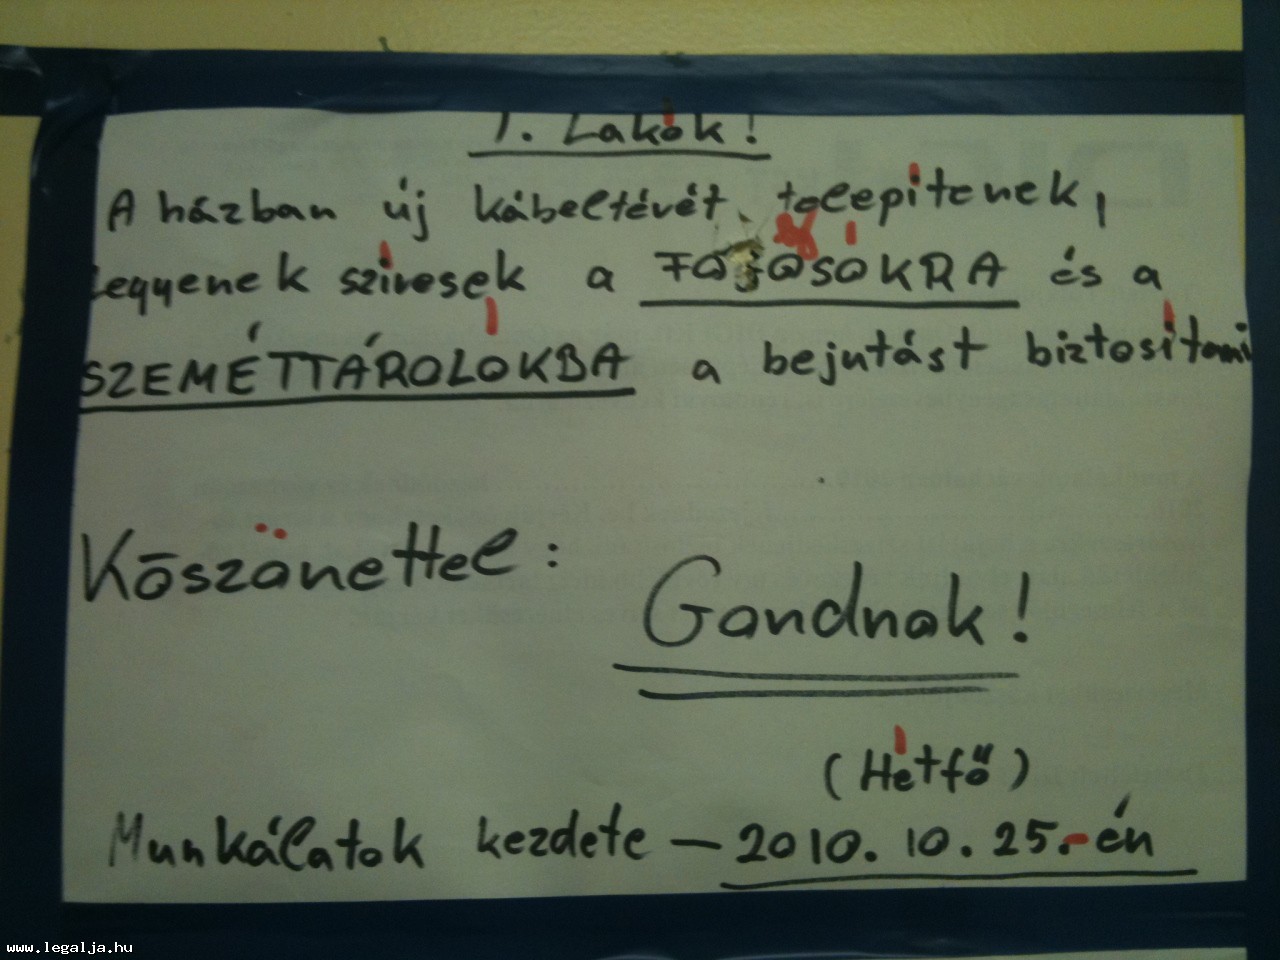 T. Lakók!
A házban új kábeltévét telepítenek,
legyenek szívesek a és a
SZEMÉTTÁROLÓKBA a bejutást biztosítani
Köszönettel:
Gondnok!
(Hétfő)
Munkálatok kezdete – 2010. 10. 25.-én
www.legalja.hu